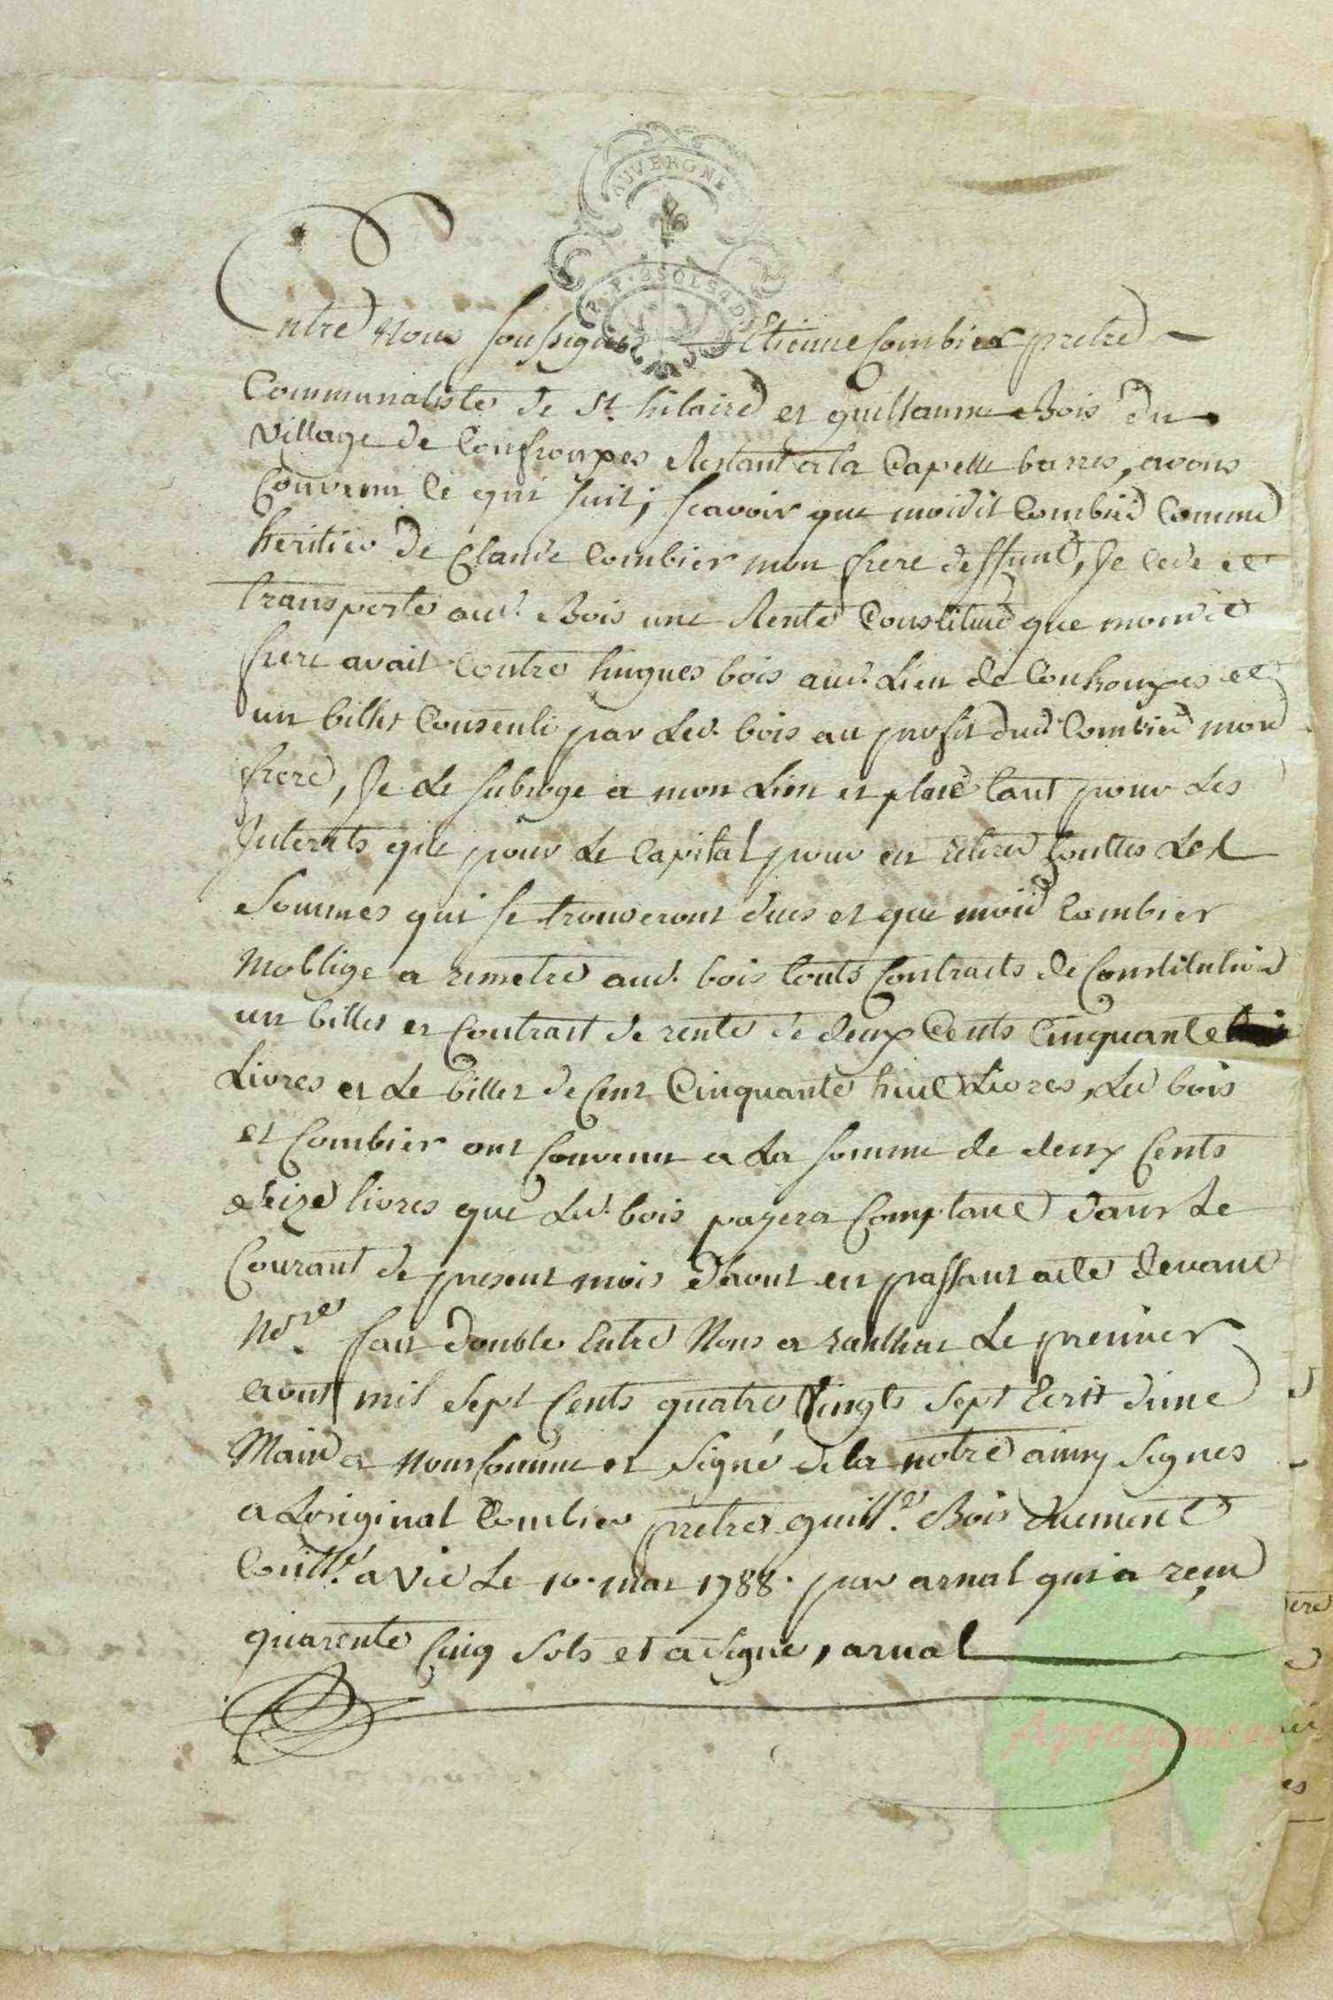 AUVERGNE
Entre Nous soussignes Etienne Combier pretre
Communaliste de St. hilaire et guillaume Bois du
village de Restant a la Capelle barres, avons
Convenu Ce qui suit; scavoir que moidit Combier Comme
heritier de Claude Combier mon frere deffunt, Je cede et
transporte aud. Bois une Rente Constitué que mondit
frere avait Contre hugues bois aud. Lieu de et
un billet Consenti par Led. bois au profit dud. Combier mon
frere, Je Le subroge a mon Lieu et place tant pour Les
Interrets que pour Le Capital pour en retirer touttes Les
Sommes qui se trouveront dues et que moid. Combier
Moblige a remetre aud. bois touts Contracts de Constitution
un billet et Contract de rente de deux Cents Cinquante
Livres et Le billet de Cent Cinquante huit Livres, Led. bois
et Combier ont Convenu a La somme de deux Cents
seize livres que Led. bois payera Comptant dans Le
Courant de present mois daout en passant acte devant
Nore. fait double Entre Nous a Le premier
aout mil sept Cents quatre vingts sept Ecrit dune
Main a Nous et signé de la notre ainsy signes
a Loriginal Combier pretre guille. Bois duement
Contlé. a Vic Le 10. mai 1788. par arnal qui a reçu
quarente Cinq Sols et a signe, arnal
Aprogemere